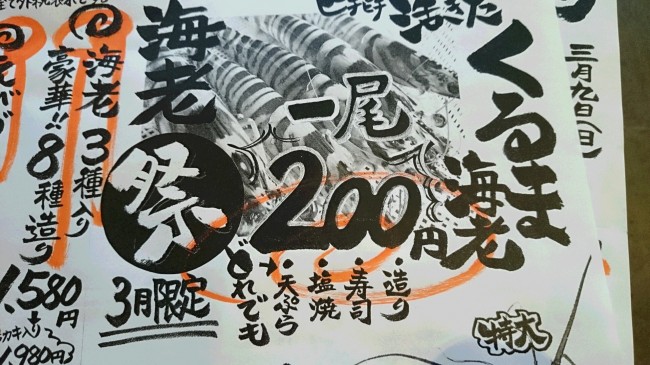 三月九日(日)
ピチピチ
活きた
くるま
海老
一尾
200円
・造り
・寿司
・塩焼
・天ぷら
どれでも
海老
祭
3月限定
海老3種入り
豪華!!8種造り
1,580円
カキ入り
1,980円
特大